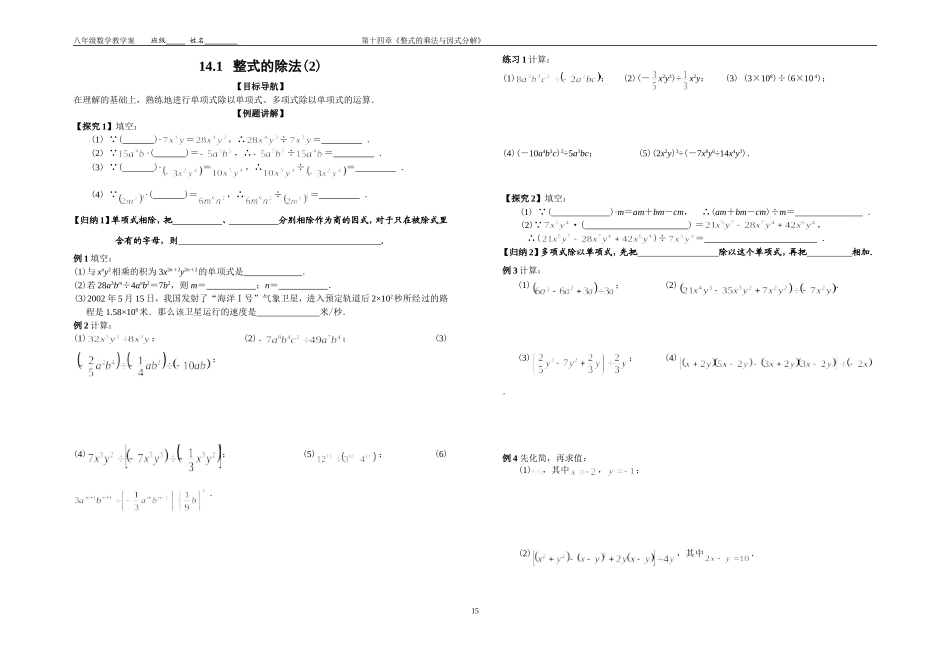 八年级数学教学案 班级_____ 姓名________ 第十四章《整式的乘法与因式分解》
14.1 整式的除法(2)
【目标导航】
在理解的基础上，熟练地进行单项式除以单项式、多项式除以单项式的运算.
【例题讲解】
【探究1】填空:
(1) ∵(______)·7x³y=28x⁴y², ∴28x⁴y²÷7x³y=________ .
(2) ∵15a⁴b·(______)=-5a⁵b³, ∴-5a⁵b³÷15a⁴b=________ .
(3) ∵(______)·(-3x²y⁴)=10x⁵y⁴, ∴10x⁵y⁴÷(-3x²y⁴)=________ .
(4) ∵(2m²)·(______)=6m⁶n², ∴6m⁶n²÷(2m²)=________ .
【归纳1】单项式相除,把_________、_________分别相除作为商的因式,对于只在被除式里
含有的字母,则______________________________.
例1填空:
(1)与xⁿy²相乘的积为3x²ⁿ⁺²y²ⁿ⁺²的单项式是___________.
(2)若28a³bᵐ÷4aⁿb²=7b²，则m=_________;n=_________.
(3)2002年5月15日，我国发射了“海洋Ⅰ号”气象卫星，进入预定轨道后2×10²秒所经过的路
程是1.58×10⁶米．那么该卫星运行的速度是___________米/秒.
例2计算:
(1)32x⁵y³÷8x³y; (2)-7a⁸b⁴c²÷49a⁷b⁴; (3)
(-2/5a²b⁴)÷(-1/4ab²)÷(-10ab);
(4)7x³y²÷[(-7x⁵y³)÷(-1/3x³y²)]; (5) (6)
练习1计算:
(1)8a³b³c²÷(-2a²bc); (2)(-3/5x²y³)÷1/3x²y; (3) (3×10⁸)÷(6×10⁴);
(4)(-10a⁴b³c)²÷5a³bc; (5)(2x²y)³÷(-7x⁸y⁶÷14x⁴y³).
【探究2】填空:
(1) ∵(___________)·m=am+bm-cm, ∴(am+bm-cm)÷m=_____________ .
(2)∵7x⁵y⁴·(___________________)=21x⁵y⁷-28x⁷y⁴+42x⁶y⁴,
∴(21x⁵y⁷-28x⁷y⁴+42x⁶y⁴)÷7x⁵y⁴=____________________ .
【归纳2】多项式除以单项式,先把_______________除以这个单项式,再把________相加.
例3计算:
(1)(6a³-6a²+3a)÷3a; (2)(21x⁴y³-35x³y²+7x²y²)÷(-7x²y).
(3)[2/5y³-7y²+2/3y]÷2/3y; (4)[(x+2y)(5x-2y)-(3x+2y)(3x-2y)]÷(-2x)
.
例4先化简，再求值:
(1) ,其中x=-2, y=-1;
(2)[(x²+y²)-(x-y)²+2y(x-y)]÷4y ，其中2x-y=10.
15